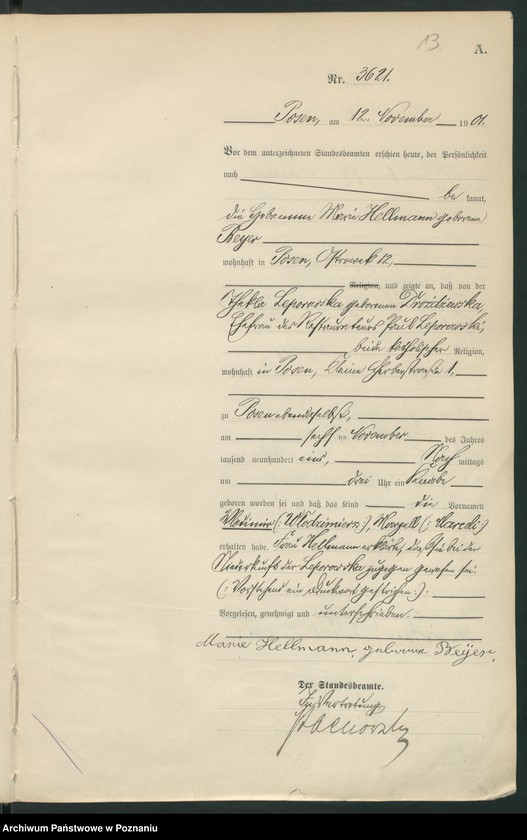 13
A.
Nr. 3621.
Posen, am 12. November 1901.
Vor dem unterzeichneten Standesbeamten erschien heute, der Persönlichkeit
nach
be kannt,
die Hebamme Marie Hellmann geborene
Beyer
wohnhaft in Posen, Ostrowek 12,
Religion, und zeigte an, daß von der
Thekla Leporowska geborenen Drozdzewska,
Ehefrau des Restaurateurs Paul Leporowski,
beide katholischer Religion,
wohnhaft in Posen, Kleine Gerberstraße 1,
zu Posen ebendaselbst,
am sechsten November des Jahres
tausend neunhundert eins, Nach mittags
um drei Uhr ein Knabe
geboren worden sei und daß das Kind die Vornamen
Wladimir (: Włodzimierz:), Marzell (: Marceli:)
erhalten habe. Frau Hellmann erklärte, daß sie bei der
Niederkunft der Leporowska zugegen gewesen sei.
(: Vorstehend ein Druckwort gestrichen. :)
Vorgelesen, genehmigt und unterschrieben.
Marie Hellmann, geborene Beyer,
Der Standesbeamte.
In Vertretung
Archiwum Państwowe w Poznaniu